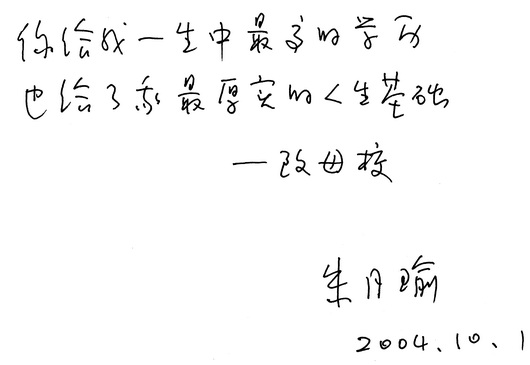 你给我一生中最高的学历
也给了我最厚实的人生基础
—致母校
朱月瑜
2004.10.1